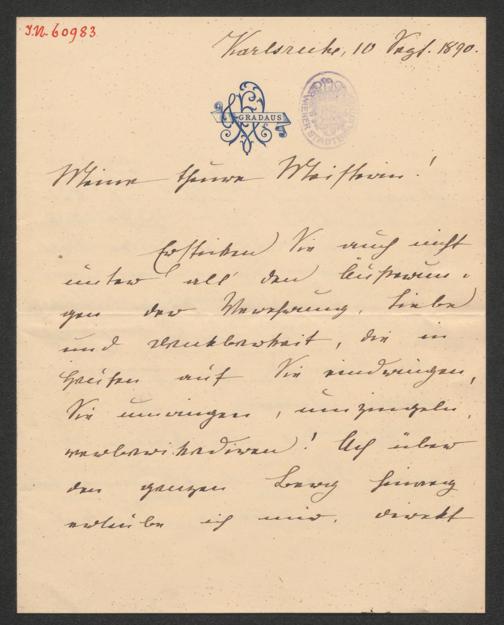 I.N. 60983
Karlsruhe, 10 Sept. 1890.
GRADAUS
WIENER STADT
Meine theure Meisterin!
Ersticken Sie auch nicht
unter all' den Äußerun-
gen der Verehrung, Liebe
und Dankbarkeit, die in
Haufen auf Sie eindringen,
Sie umringen, umzingeln,
verbarrikadiren! Ach über
den ganzen Berg hinweg
erlaube ich mir, direkt